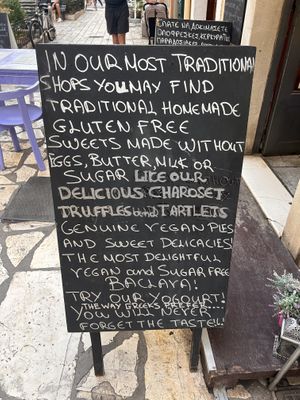 ΕΛΑΤΕ ΝΑ ΔΟΚΙΜΑΣΕΤΕ
IN OUR MOST TRADITIONAL
SHOPS YOU MAY FIND
TRADITIONAL HOMEMADE
GLUTEN FREE
SWEETS MADE WITHOUT
EGGS, BUTTER, NUT OR
SUGAR LIKE OUR
DELICIOUS CHAROSET
TRUFFLES AND TARTLETS
GENUINE VEGAN PIES
AND SWEET DELICACIES!
THE MOST DELIGHTFUL
VEGAN AND SUGAR FREE
BACLAVA!
TRY OUR YOGURT!
THE WAY GREEKS PREFER...
YOU WILL NEVER
FORGET THE TASTE!!